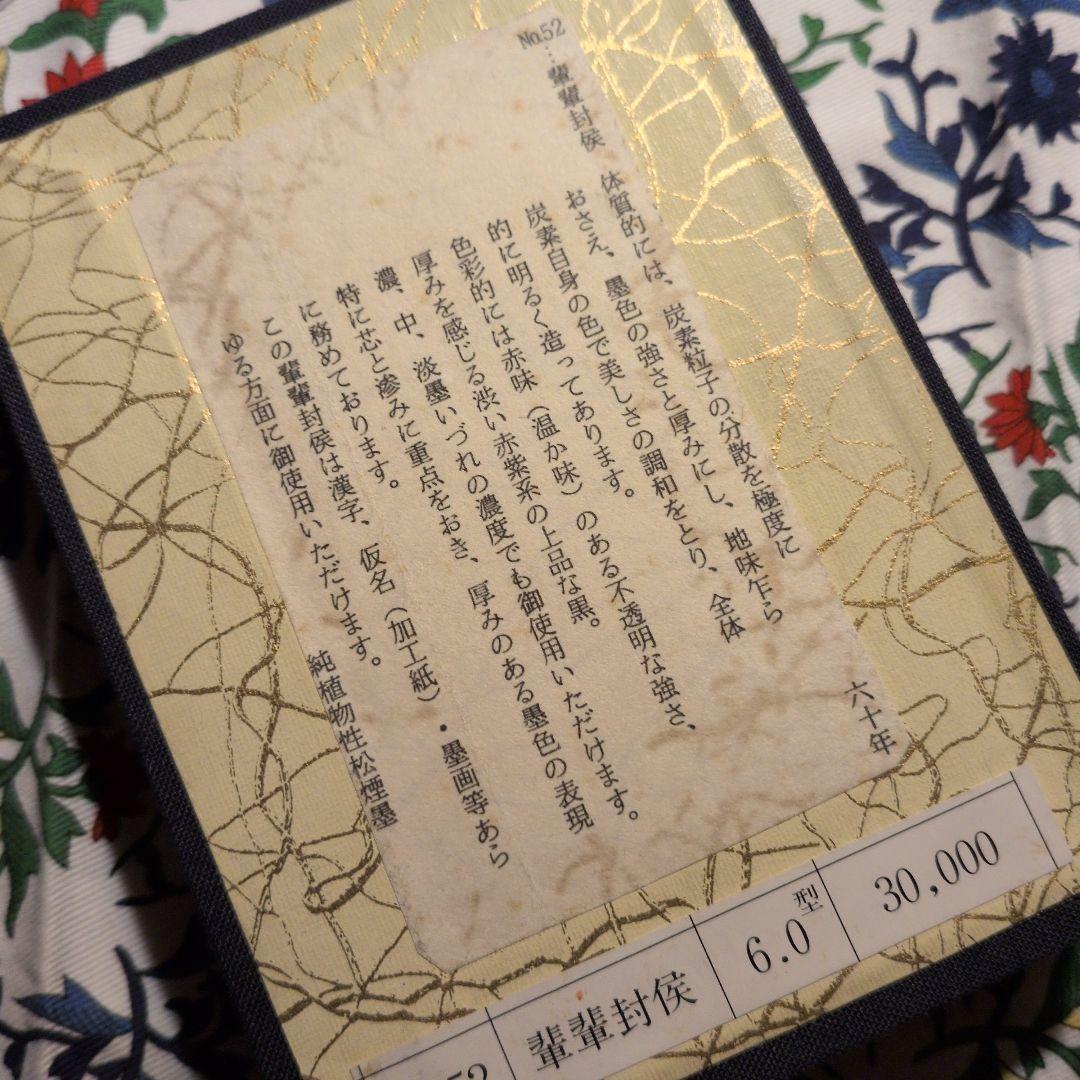 No.52…輩輩封侯
六十年
体質的には、炭素粒子の分散を極度に
おさえ、墨色の強さと厚みにし、地味乍ら
炭素自身の色で美しさの調和をとり、全体
的に明るく造ってあります。
色彩的には赤味（温か味）のある不透明な強さ、
厚みを感じる渋い赤紫系の上品な黒。
濃、中、淡墨いづれの濃度でも御使用いただけます。
特に芯と滲みに重点をおき、厚みのある墨色の表現
に務めております。
この輩輩封侯は漢字、仮名（加工紙）・墨画等あら
ゆる方面に御使用いただけます。
純植物性松煙墨
52
輩輩封侯
6.0型
30,000